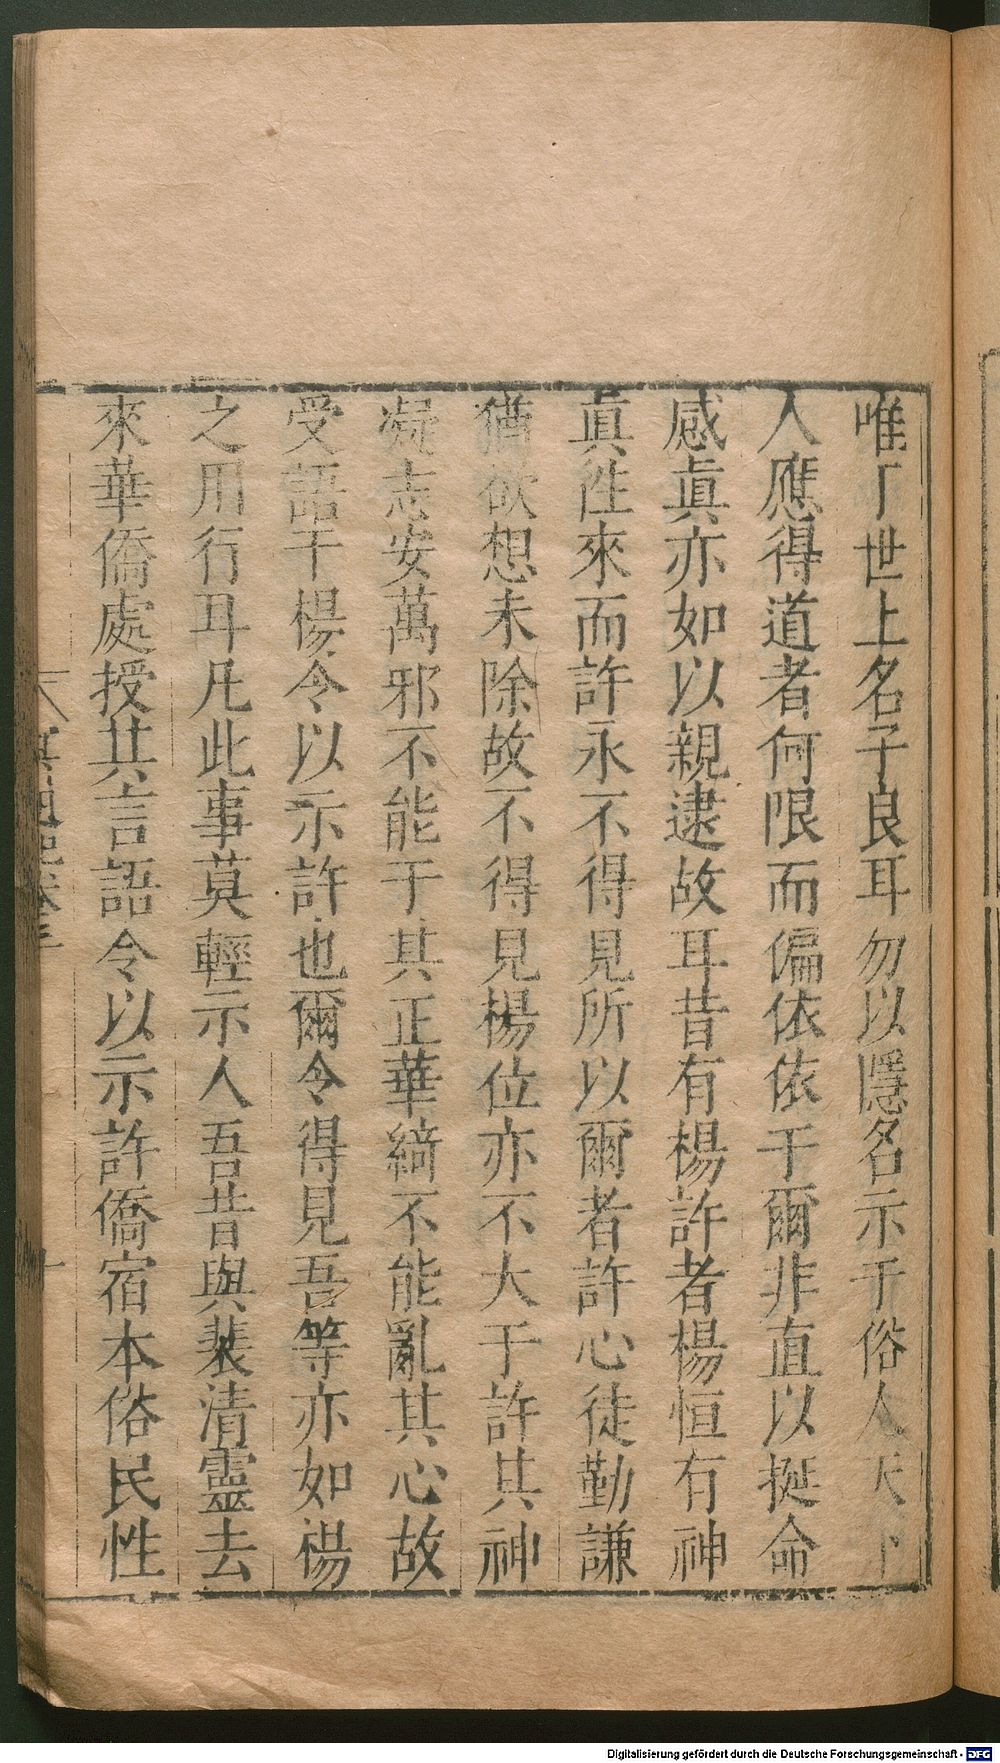 唯了世上名子良耳勿以隱名示于俗人天下
人應得道者何限而偏依依于爾非直以挺命
感眞亦如以親逮故耳昔有楊許者楊恒有神
眞往來而許永不得見所以爾者許心徒勤謙
猶欲想未除故不得見楊位亦不大于許其神
凝志安萬邪不能于其正華綺不能亂其心故
受語干楊令以示許也爾令得見吾等亦如楊
之用行耳凡此事莫輕示人吾昔與裴清靈去
來華僑處授其言語令以示許僑宿本俗民性
卷三
十
Digitalisierung gefördert durch die Deutsche Forschungsgemeinschaft - DFG